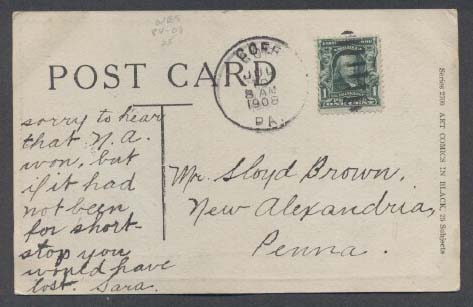 WBS
POST CARD
8 AM
1908
PA.
1
sorry to hear
that N. A.
won, but
if it had
not been
for short-
stop you
would have
lost. Sara.
Mr. Lloyd Brown,
New Alexandria,
Penna.
Series 2500 ART COMICS IN BLACK, 25 Subjects